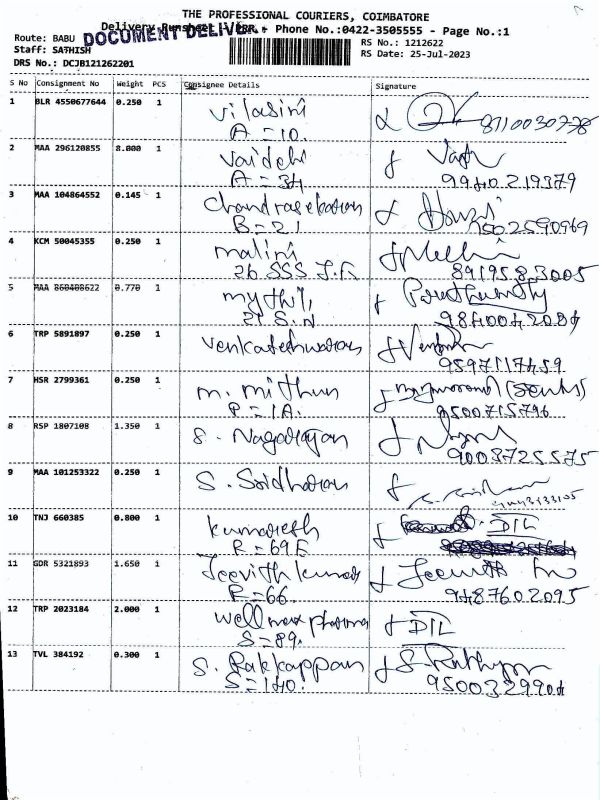 THE PROFESSIONAL COURIERS, COIMBATORE
Delivery Runsheet - Phone No.:0422-3505555 - Page No.:1
DOCUMENT DELIVER
Route: BABU
Staff: SATHISH
DRS No.: DCJB121262201
RS No.: 1212622
RS Date: 25-Jul-2023
S No Consignment No Weight PCS Consignee Details Signature
1 BLR 4550677644 0.250 1 Vilasini
A = 10. 8110030738
2 MAA 296120855 8.000 1 Vaidehi
A = 34 9940219379
3 MAA 104864552 0.145 1 Chandrasekaran
B = 21 7502590969
4 KCM 50045355 0.250 1 malini
26 SSS 8919583005
5 MAA 860408622 0.770 1 mythili
21 S.N
6 TRP 5891897 0.250 1 Venkateshwaran
9597117459
7 HSR 2799361 0.250 1 m. mithun
P = 1A. 9500715796
8 RSP 1807108 1.350 1 S. Nagarajan
9003725575
9 MAA 101253322 0.250 1 S. Sridharan
10 TNJ 660385 0.800 1 Kumaresh DIL
R = 69E
11 GDR 5321893 1.650 1 Jeevith kumar
R = 66. 9487602095
12 TRP 2023184 2.000 1 wellmax pharma DIL
S = 89.
13 TVL 384192 0.300 1 S. Rakkappan
S = 140. 9500329904